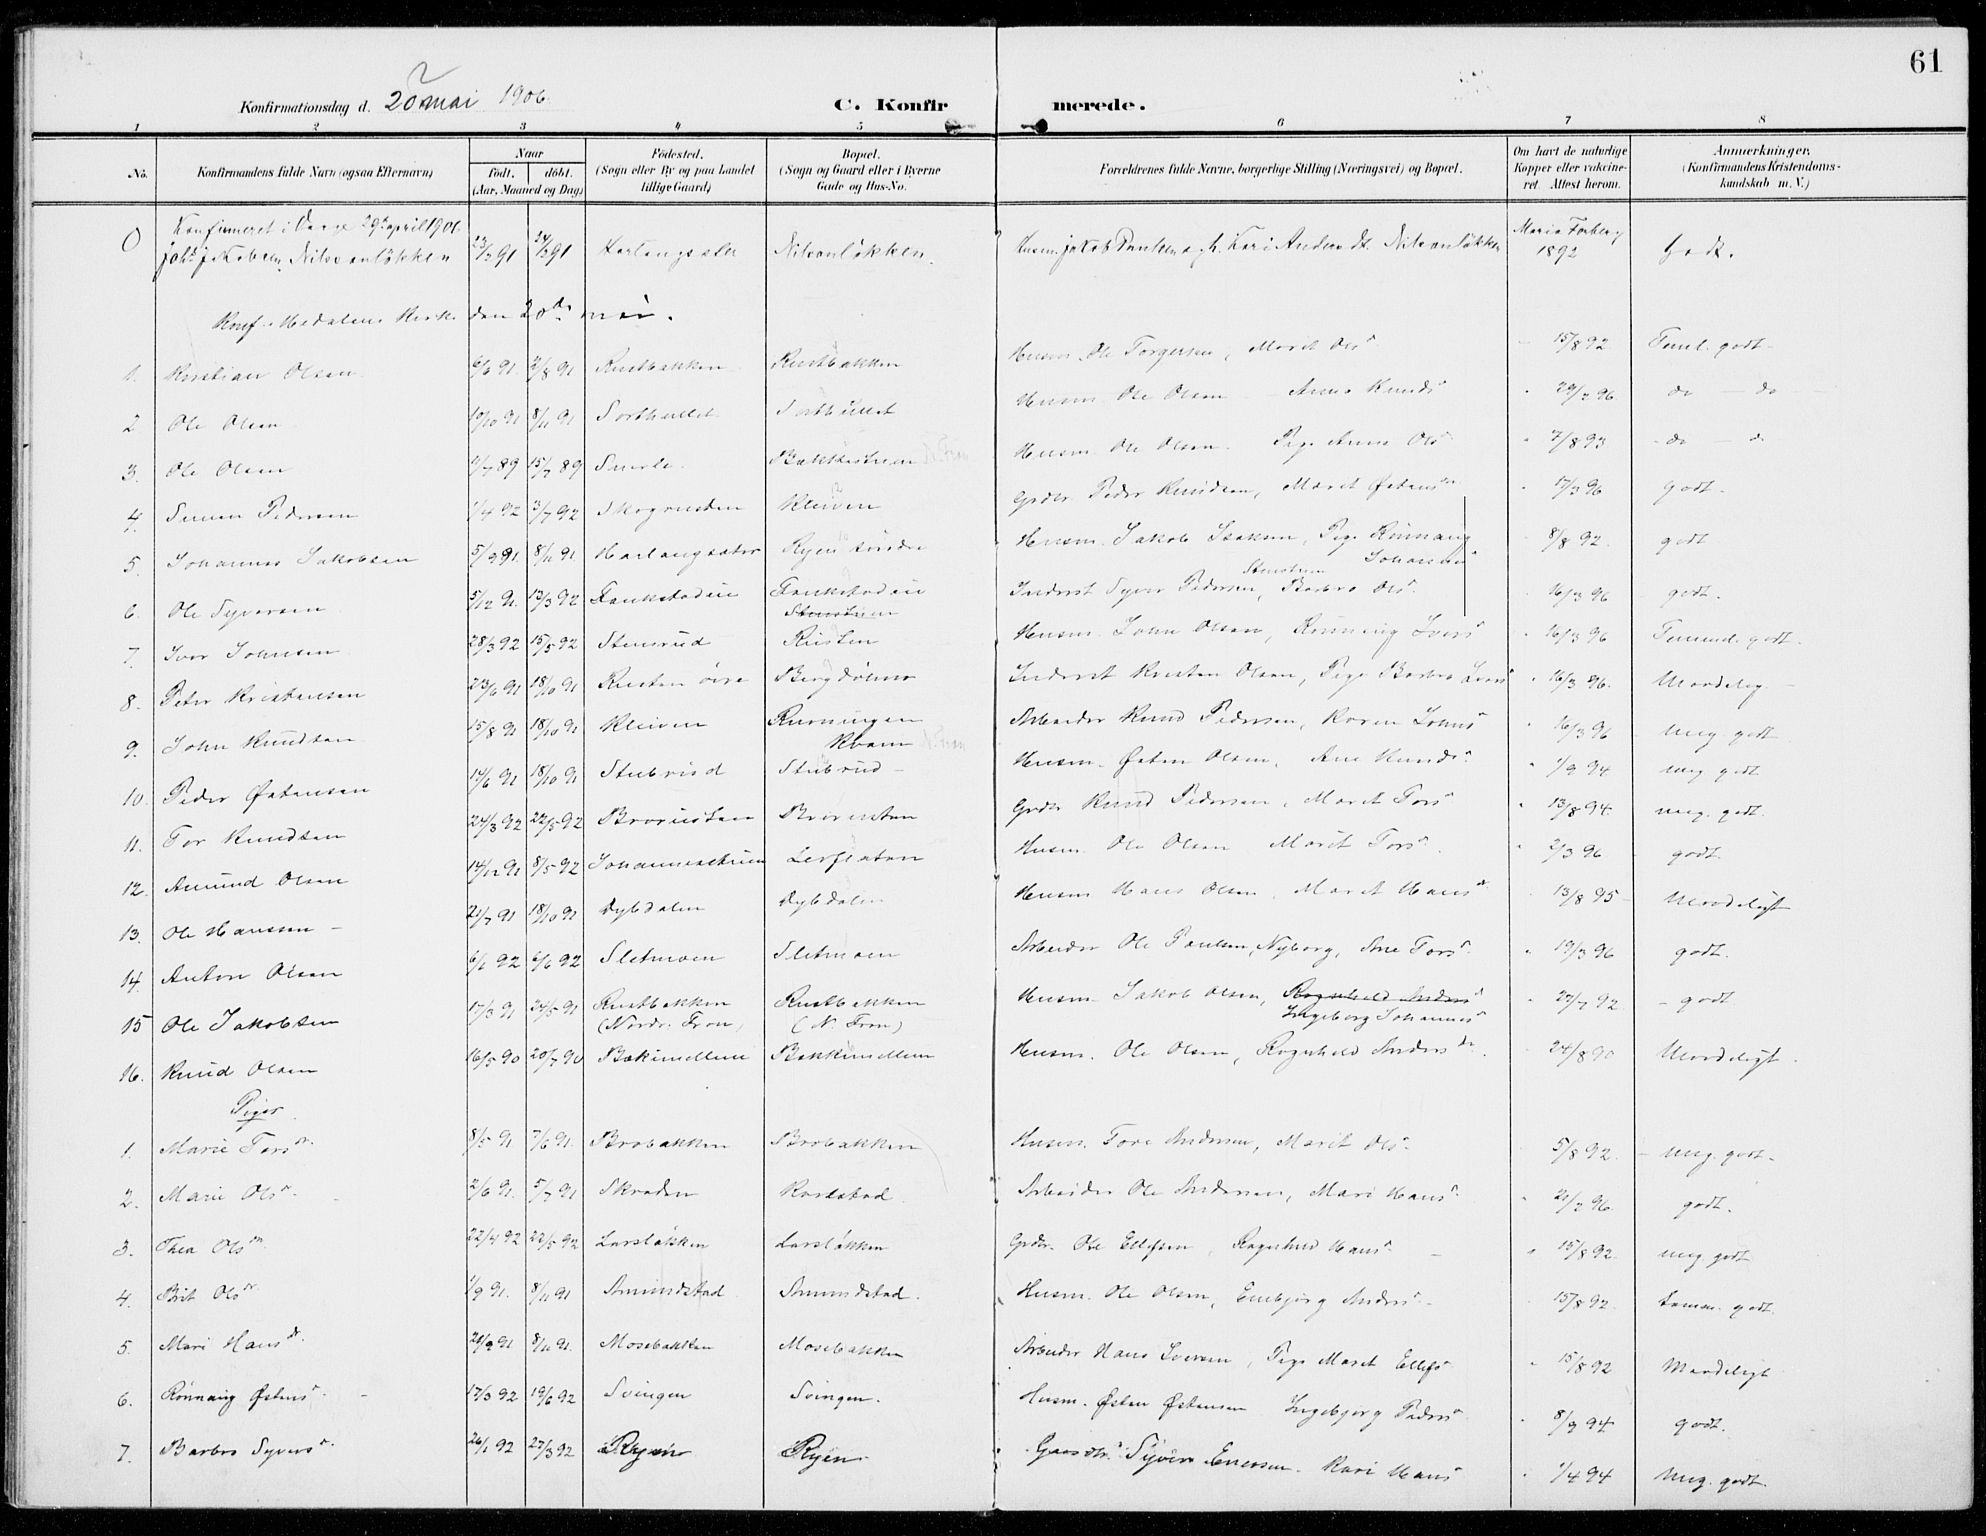 61
Konfirmationsdag d. 20 mai 1906.
C. Konfirmerede.
1 2 3 4 5 6 7 8
No. Konfirmandens fulde Navn (ogsaa Efternavn) Naar født. døbt. (Aar, Maaned og Dag) Fødested. (Sogn eller By og paa Landet tillige Gaard) Bopæl. (Sogn og Gaard eller i Byerne Gade og Hus-No. Forældrenes fulde Navne, borgerlige Stilling (Næringsvei) og Bopæl. Om havt de naturlige Kopper eller vakcineret. Attest herom. Anmærkninger. (Konfirmandens Kristendomskundskab m. V.)
Konfirmeret i Vaage 29de april 1906
0 Joh. Jakobsen Nilsonløkken 23/3 91 91 Nilsonløkken Husm. Jakob Paulsen og h. Kari Andersdt. Nilsonløkken Maria Forberg 1892 Godt.
Konf. Hedalens Kirke den 20de mai.
1. Kristian Olsen 6/6 91 2/8 91 Rustbakken Rustbakken Husm. Ole Torgersen, Marit Olsdr 15/8 92 Teml. godt
2 Ole Olsen 19/10 91 8/11 91 Sorthullet Sorthullet Husm. Ole Olsen Anne Knudsdr 29/2 96 do do
3. Ole Olsen 1/7 89 15/7 89 Suerle Bakkestuen N. Fron Husm. Ole Olsen. Pige Anne Olsdr 7/8 93 do
4. Simen Pedersen 1/4 92 3/7 92 Skogrusten Kleiven Grdbr Peder Knudsen, Marit Østensdr 17/3 96 godt.
5. Johannes Jakobsen 5/9 91 8/11 91 Harlaugsæter Ryen søndre Husm. Jakob Isaksen, Pige Rønnaug Johannesdr 8/8 92 godt
6. Ole Syversen 5/12 91 13/3 92 Faukstadeie Faukstadeie Stenstuen Inderst Syver Pedersen, Barbro Olsdr 16/3 96 godt.
7. Iver Johnsen 28/3 92 15/5 92 Stensrud Rusten Husm. John Olsen, Rønnaug Iversdr 16/3 96 Temmel. godt.
8. Peter Kristensen 23/6 91 18/10 91 Rusten øvre Bergdølmo Inderst Kristen Olsen, Pige Barbro Iversdr 16/3 96. Maadelig
9. John Knudsen 15/8 91 18/10 91 Kleiven Rusningen Kvam N. Fron Arbeider Knud Pedersen, Karen Johnsdr 16/3 96 meg. godt
10. Peder Østensen 14/6 91 18/10 91 Stubrud Stubrud Husm. Østen Olsen, Ane Knudsdr 1/9 94 meg. godt
11. Tor Knudsen 24/3 92 22/5 92 Brorusten Brorusten Grdbr Knud Pedersen, Marit Torsdr 13/8 94. meg. godt.
12. Amund Olsen 14/12 91 8/5 92 Johannesstuen Lerflaten Husm. Ole Olsen Marit Torsdr. 2/3 96 godt.
13. Ole Hansen 21/7 91 18/10 91 Dybdalen Dybdalen Husm Hans Olsen, Marit Hansdr 13/8 95 Maadeligt
14. Anton Olsen 6/1 92 6/6 92 Sletmoen Sletmoen Arbeider Ole Paulsen, Nyborg, Ane Torsdr 19/3 96 godt.
15 Ole Jakobsen 17/3 91 24/5 91 Rustbakken (Nordr. Fron) Rustbakken (N. Fron) Husm. Jakob Olsen, Ragnhild Andersdr Ingeborg Johannesdr 27/7 92 godt
16. Knud Olsen 16/5 90 20/7 90 Bækimellem Bækkimellem Husm. Ole Olsen, Ragnhild Andersdr. 24/8 90 Maadeligt.
Piger
1. Marie Torsdr. 8/5 91 7/6 91. Brobakken Brobakken Husm. Tore Andersen, Marit Olsdr 5/8 92. meg. godt.
2. Marie Olsdr. 2/6 91. 5/7 91 Skroden Arbeider Ole Andersen, Mari Hansdr 21/2 96. godt.
3. Thea Olsdtr 22/4 92 22/5 92 Larsløkken Larsløkken Grdbr. Ole Ellefsen, Ragnhild Hansdr 15/8 92. meg godt
4. Brit Olsdr 1/9 91. 8/11 91 Amundstad Amundstad. Husm. Ole Olsen, Embjørg Andersdr 15/8 92. temm. godt.
5. Mari Hansdr. 21/9 91 8/11 91. Mosebakken Mosebakken Arbeider Hans Iversen, Pige Marit Ellefsdr 15/8 92 Maadeligt
6. Rønnaug Østensdr. 17/3 92 19/6 92 Svingen Svingen. Husm. Østen Østensen Ingebjørg Pedersdr 8/9 94 godt.
7. Barbro Syversdr. 26/1 92 27/3 92 Ryen Ryen. Gaardbr. Syver Enersen. Kari Hansdr 1/4 94 Meg. godt.